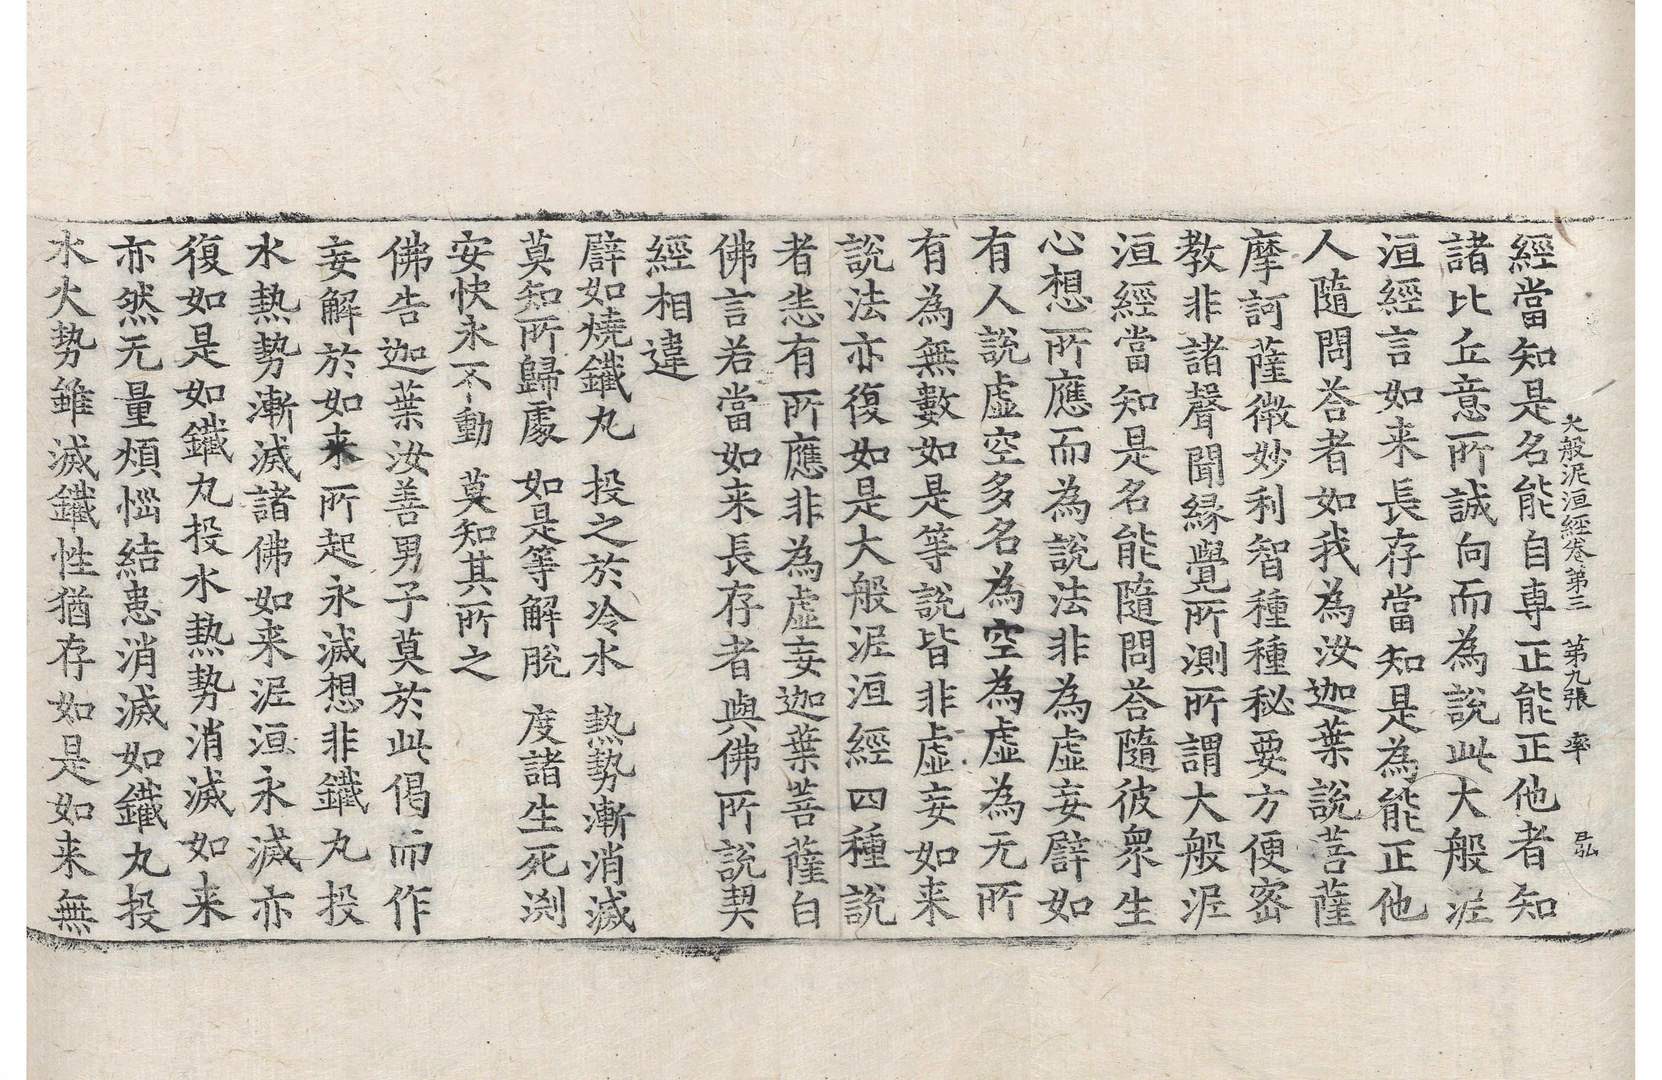 大般泥洹經卷第三　第九張　率　弘
經當知是名能自專正能正他者知
諸比丘意所誠向而為說此大般泥
洹經言如来長存當知是為能正他
人隨問荅者如我為汝迦葉說菩薩
摩訶薩微妙利智種種秘要方便密
教非諸聲聞縁覺所測所謂大般泥
洹經當知是名能隨問荅隨彼衆生
心想所應而為說法非為虛妄譬如
有人說虛空多名為空為虛為无所
有為無數如是等說皆非虛妄如来
說法亦復如是大般泥洹經四種說
者悉有所應非為虛妄迦葉菩薩白
佛言若當如来長存者與佛所說契
經相違
譬如燒鐵丸　投之於冷水　熱勢漸消滅
莫知所歸處　如是等解脫　度諸生死渕
安快永不動　莫知其所之
佛告迦葉汝善男子莫於此偈而作
妄解於如来所起永滅想非鐵丸投
水熱勢漸滅諸佛如来泥洹永滅亦
復如是如鐵丸投水熱勢消滅如来
亦然无量煩惱結患消滅如鐵丸投
水火勢雖滅鐵性猶存如是如来無